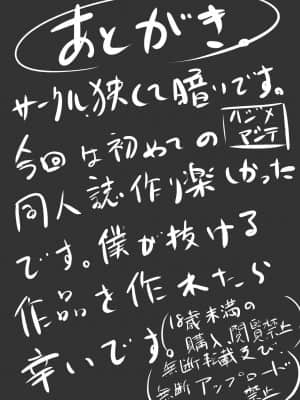 あとがき。
サークル.狭くて暗いです。
今回は初めての
ハジメ
マシテ
同人誌.作り楽しかった
です。僕が抜ける
作品を作れたら
幸いです。
18歳未満の
購入、閲覧禁止
無断転載及び、
無断アップロード
禁止